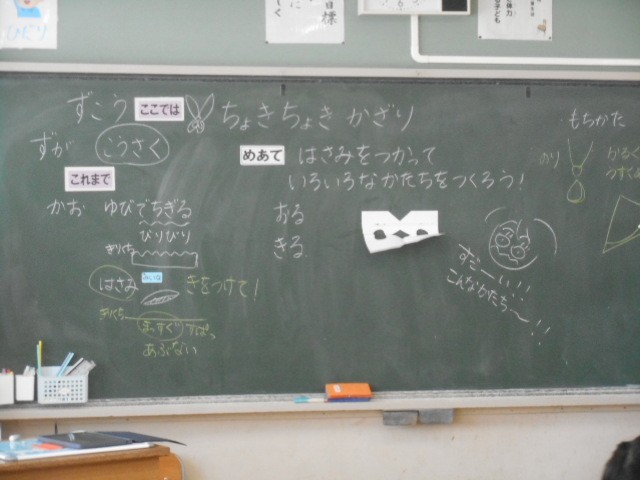 ずこう ここでは ちょきちょき かざり
ずが こうさく
めあて はさみをつかって
いろいろなかたちをつくろう!
これまで
かお ゆびでちぎる
びりびり
ぎりくち
はさみ きをつけて!
ぎりくち
まっすぐ すぱっ
あぶない
おる
きる
すご～い!!
こんなかたち～!!
もちかた
のり
目標